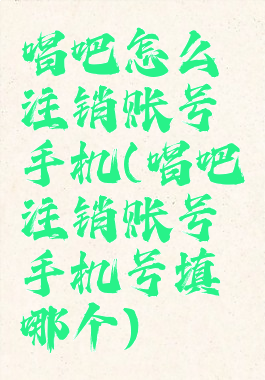 唱吧怎么
注销账号
手机(唱吧
注销账号
手机号填
哪个)